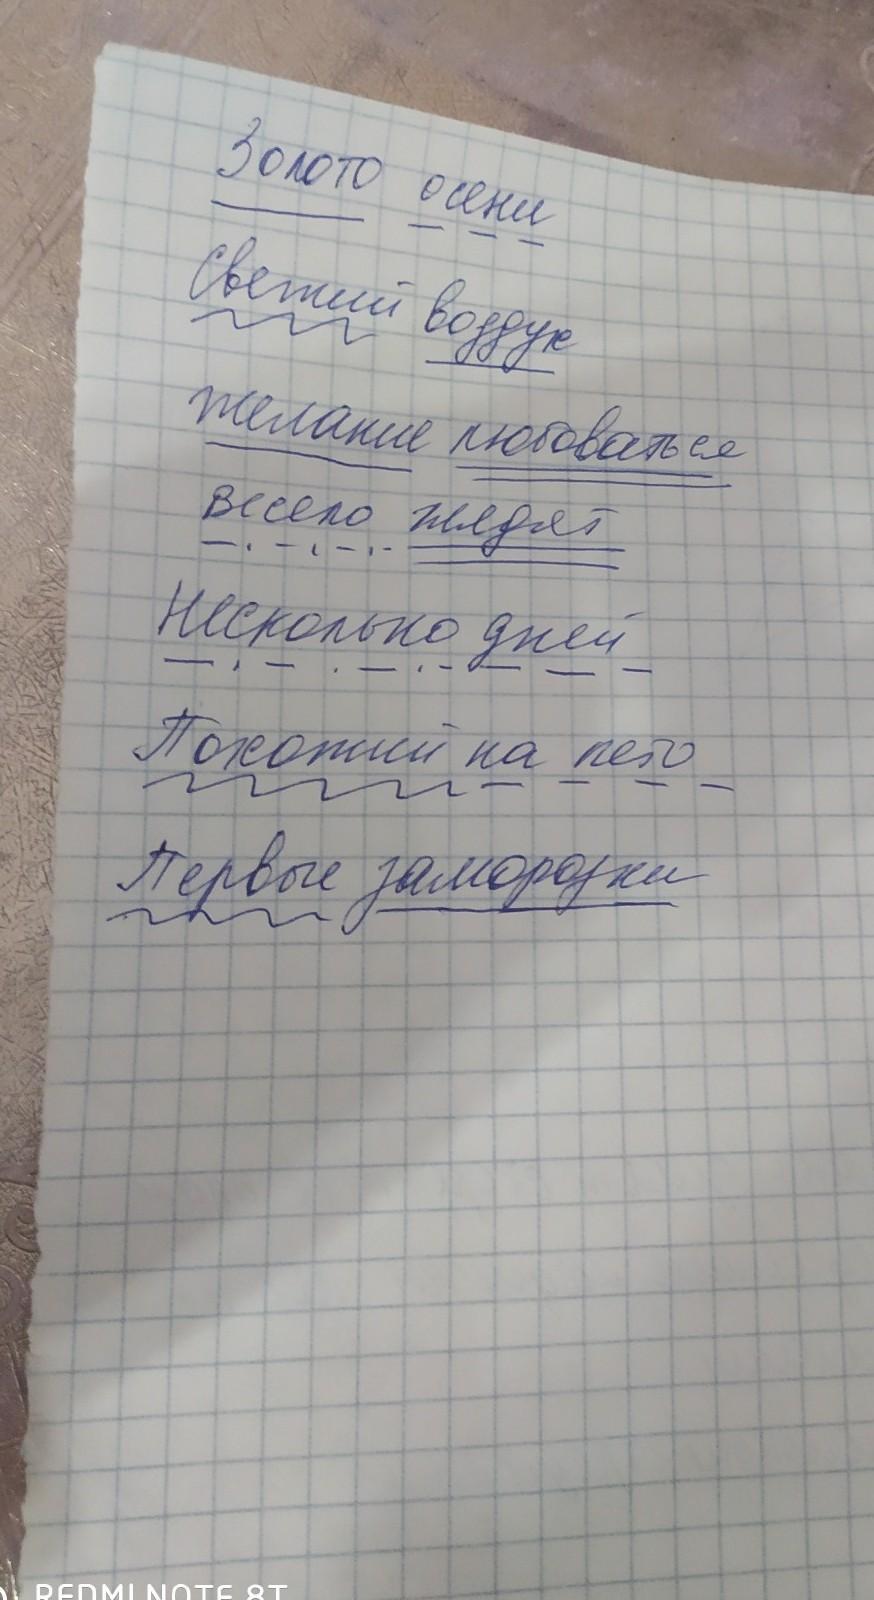 Золото осени
Свежий воздух
Желание любоваться
весело глядят
Несколько дней
Похожий на лето
Первые заморозки
REDMI NOTE 8T